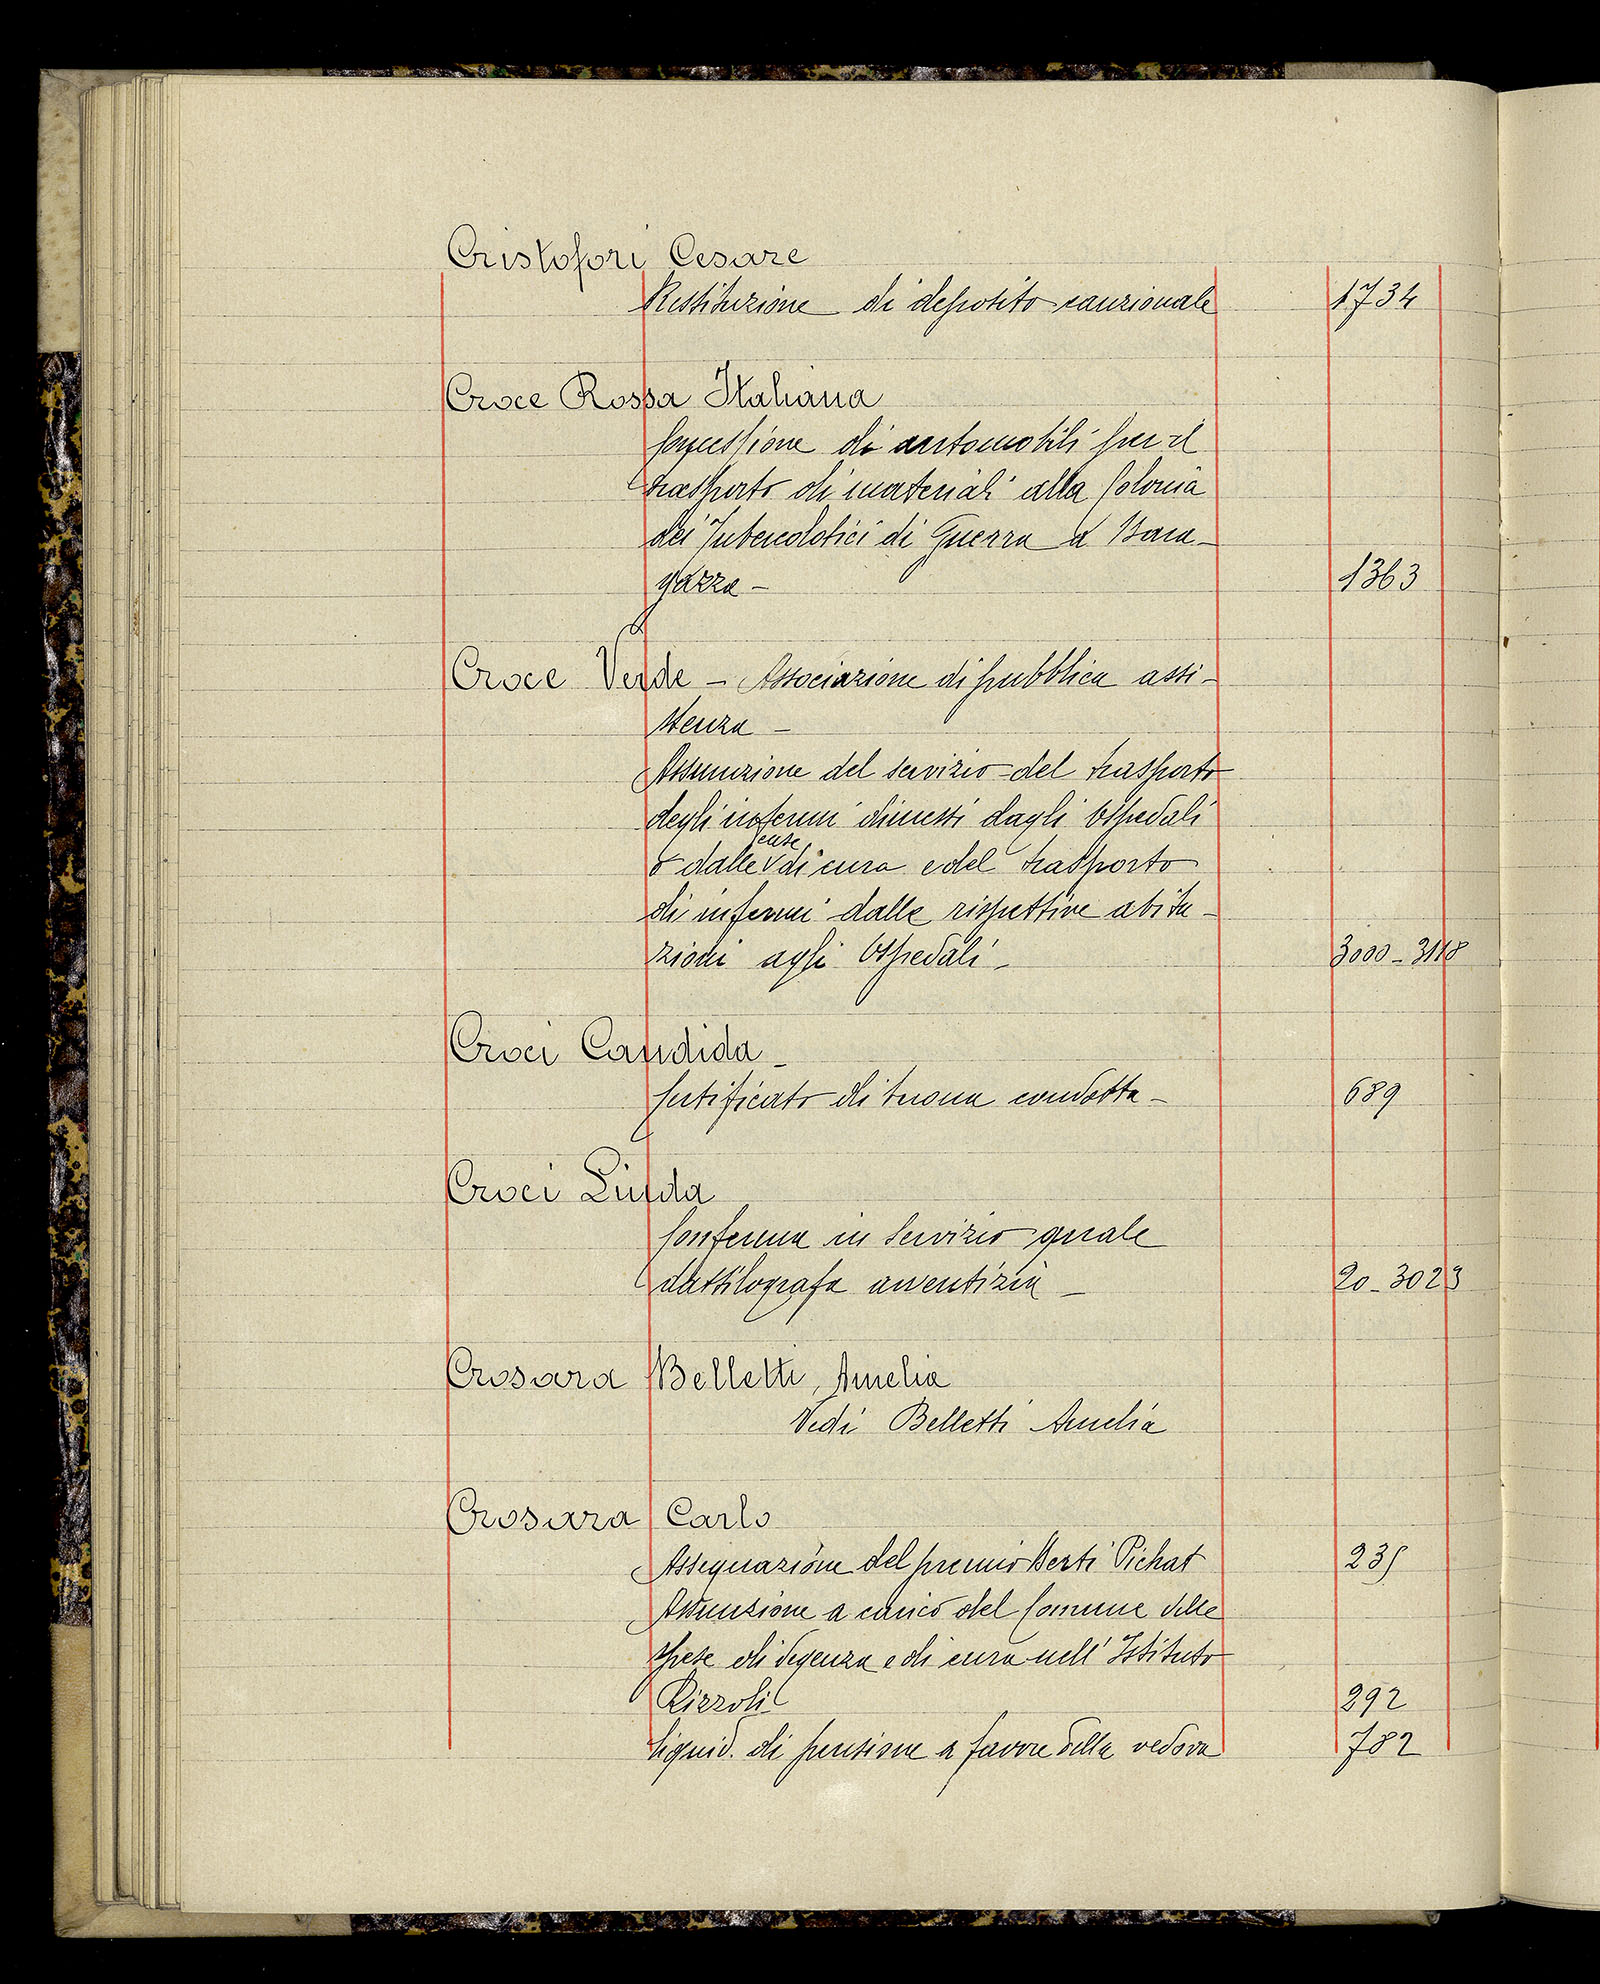 Cristofori Cesare
Restituzione di deposito cauzionale 1734
Croce Rossa Italiana
Concessione di automobili per il
trasporto di materiali alla Colonia
dei Tubercolotici di Guerra a Bara-
gazza - 1363
Croce Verde - Associazione di pubblica assi-
stenza -
Assunzione del servizio del trasporto
degli infermi dimessi dagli Ospedali
o dalle case di cura e del trasporto
di infermi dalle rispettive abita-
zioni agli Ospedali - 3000 - 3118
Croci Candida -
Certificato di buona condotta - 689
Croci Linda
Conferma in servizio quale
dattilografa avventizia - 20 - 3023
Crosara Belletti, Amelia
Vedi Belletti Amelia
Crosara Carlo
Assegnazione del premio Berti Pichat 235
Assunzione a carico del Comune delle
spese di degenza e di cura nell'Istituto
Rizzoli 292
Liquid. di pensione a favore della vedova 782